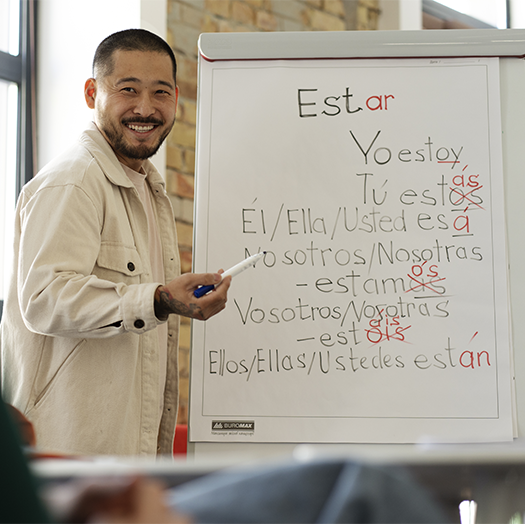 Estar
Yo estoy
ás
Tú estós
Él/Ella/Usted esá
Nosotros/Nosotras
ós
-estamas
Vosotros/Nosotras
eis
-estóis
Ellos/Ellas/Ustedes están
BUROMAX